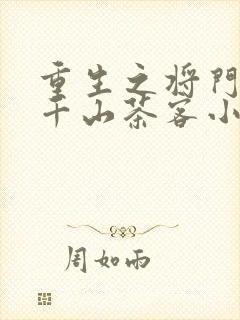 重生之将门
千山茶客小
周如雨